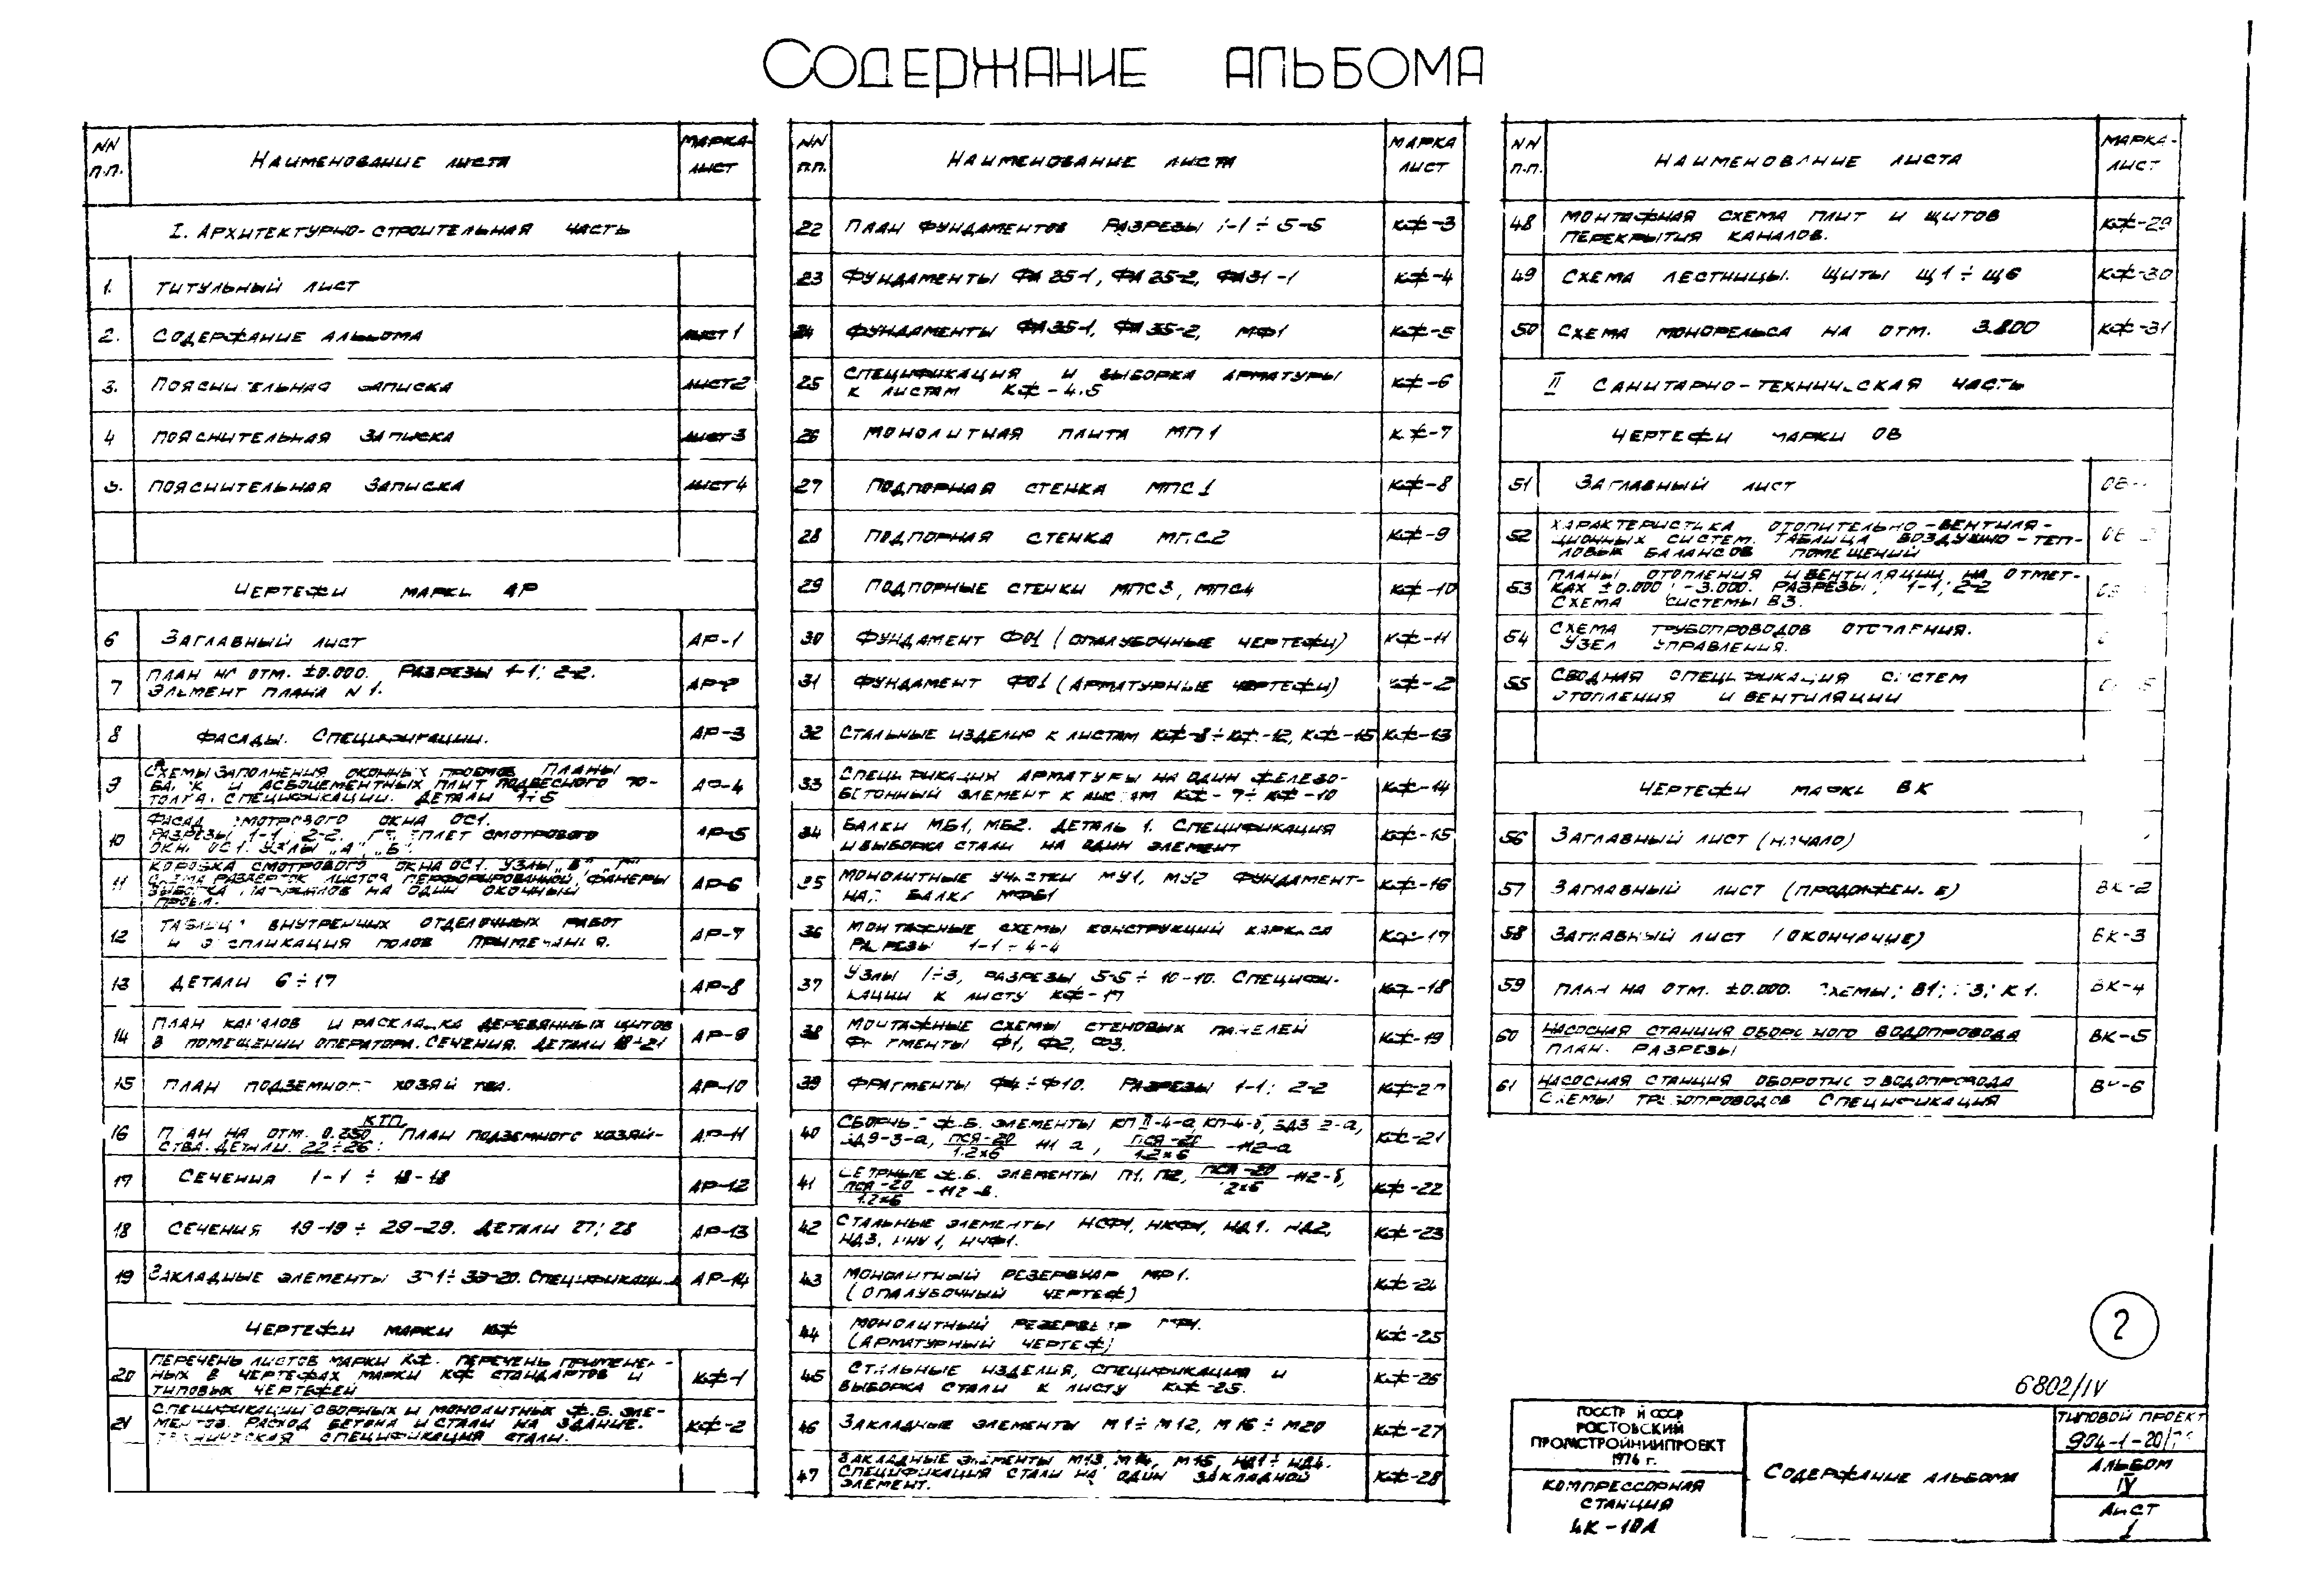 Содержание альбома
NN п.п. Наименование листа Марка-лист
I. Архитектурно-строительная часть
1. Титульный лист
2. Содержание альбома лист 1
3. Пояснительная записка лист 2
4 Пояснительная записка лист 3
5. Пояснительная записка лист 4
Чертежи марки АР
6 Заглавный лист АР-1
7 План на отм. ±0.000. Разрезы 1-1; 2-2.
Элемент плана N1. АР-2
8 Фасады. Спецификации. АР-3
9 Схемы заполнения оконных проемов планы
и асбоцементных плит подвесного по-
толка. Спецификации. Детали 1÷5 АР-4
10 Фасад смотрового окна ОС1.
Разрезы 1-1 2-2. смотрового
ОС1. Узлы „А" „Б" АР-5
11 Коробка смотрового окна ОС1. Узлы „В" „Г"
листов перфорированной фанеры
на один оконный АР-6
12 Таблица внутренних отделочных работ
и экспликация полов примечания. АР-7
13 Детали 6÷17 АР-8
14 План каналов и раскладка деревянных щитов
в помещении оператора. Сечения. Детали 18÷21 АР-9
15 План подземного хозяйства. АР-10
16 КТП
План на отм. 0.250 План подземного хозяй-
ства. Детали. 22÷26 АР-11
17 Сечения 1-1 ÷ 18-18 АР-12
18 Сечения 19-19 ÷ 29-29. Детали 27; 28 АР-13
19 Закладные элементы ÷ЗЭ-20. Спецификации АР-14
Чертежи марки КЖ
20 Перечень листов марки КЖ. Перечень применен-
ных в чертежах марки КЖ стандартов и
типовых чертежей КЖ-1
21 Спецификации сборных и монолитных ж.б. эле-
ментов. Расход бетона и стали на здание.
Техническая спецификация стали. КЖ-2
NN п.п. Наименование листа Марка лист
22 План фундаментов Разрезы 1-1 ÷ 5-5 КЖ-3
23 Фундаменты ФА 25-1, ФА 25-2, ФА31-1 КЖ-4
24 Фундаменты ФА35-1, ФА 35-2, МФ1 КЖ-5
25 Спецификация и выборка арматуры
к листам КЖ-4.5 КЖ-6
26 Монолитная плита МП1 КЖ-7
27 Подпорная стенка МПС1 КЖ-8
28 Подпорная стенка МПС2 КЖ-9
29 Подпорные стенки МПС3, МПС4 КЖ-10
30 Фундамент ФО1 (опалубочные чертежи) КЖ-11
31 Фундамент ФО1 (арматурные чертежи)
32 Стальные изделия к листам КЖ-8÷КЖ-12, КЖ-15 КЖ-13
33 Спецификация арматуры на один железо-
бетонный элемент к листам КЖ-7÷КЖ-10 КЖ-14
34 Балки МБ1, МБ2. Деталь 1. Спецификация
и выборка стали на один элемент КЖ-15
35 Монолитные участки МУ1, МУ2 фундамент-
ная балка МФБ1 КЖ-16
36 Монтажные схемы конструкций каркаса
Разрезы 1-1 ÷ 4-4 КЖ-17
37 Узлы 1÷3, разрезы 5-5 ÷ 10-10. Специфи-
кации к листу КЖ-17 КЖ-18
38 Монтажные схемы стеновых панелей
Фрагменты Ф1, Ф2, Ф3. КЖ-19
39 Фрагменты Ф4÷Ф10. Разрезы 1-1; 2-2
40 Сборные ж.б. элементы КП II-4-а,
ПСЯ-20/1.2×6 ПСЯ-20/1.2×6 -Н2-а КЖ-21
41 ж.б. элементы П1, П2, ПСЯ-20
ПСЯ-20/1.2×6 КЖ-22
42 Стальные элементы НСФ1, НКФ1, НД1. НД2,
НД3. КЖ-23
43 Монолитный резервуар МР1.
(опалубочный чертеж) КЖ-24
44 Монолитный резервуар МР1.
(арматурный чертеж) КЖ-25
45 Стальные изделия, спецификация и
выборка стали к листу КЖ-25. КЖ-26
46 Закладные элементы М1÷М12, М16÷М20 КЖ-27
47 Закладные элементы М13, М14, М15, НД1÷НД4.
Спецификация стали на один закладной
элемент. КЖ-28
NN п.п. Наименование листа Марка-лист
48 Монтажная схема плит и щитов
перекрытия каналов. КЖ-29
49 Схема лестницы. Щиты Щ1÷Щ6 КЖ-30
50 Схема монорельса на отм. 3.800 КЖ-31
II Санитарно-техническая часть
Чертежи марки ОВ
51 Заглавный лист
52 Характеристика отопительно-вентиля-
ционных систем. Таблица воздушно-теп-
ловых балансов помещений
53 Планы отопления и вентиляции на отмет-
ках ±0.000; -3.000. Разрезы: 1-1; 2-2
Схема системы В3.
54 Схема трубопроводов отопления.
Узел управления.
55 Сводная спецификация систем
отопления и вентиляции
Чертежи марки ВК
56 Заглавный лист (начало)
57 Заглавный лист (продолжение) ВК-2
58 Заглавный лист (окончание) ВК-3
59 План на отм. ±0.000. Схемы; В1; К1. ВК-4
60 Насосная станция оборотного водопровода
План. Разрезы ВК-5
61 Насосная станция оборотного водопровода
Схемы трубопроводов Спецификация ВК-6
2
6802/IV
Госстрой СССР
Ростовский
Промстройниипроект
1976 г.
Компрессорная
станция
4К-10А
Содержание альбома
Типовой проект
904-1-20
Альбом
IV
Лист
1